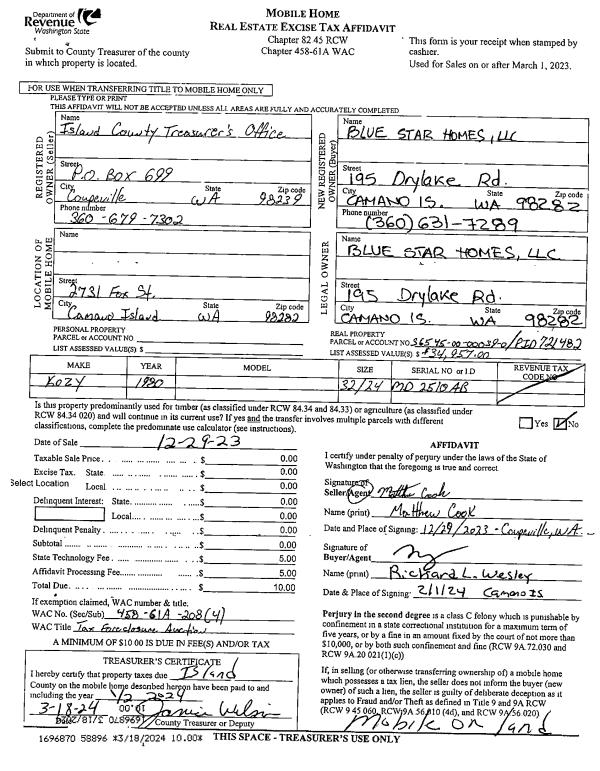 Department of
Revenue
Washington State
Submit to County Treasurer of the county
in which property is located.
MOBILE HOME
REAL ESTATE EXCISE TAX AFFIDAVIT
Chapter 82 45 RCW
Chapter 458-61A WAC
This form is your receipt when stamped by
cashier.
Used for Sales on or after March 1, 2023.
FOR USE WHEN TRANSFERRING TITLE TO MOBILE HOME ONLY
PLEASE TYPE OR PRINT
THIS AFFIDAVIT WILL NOT BE ACCEPTED UNLESS ALL AREAS ARE FULLY AND ACCURATELY COMPLETED
REGISTERED
OWNER (Seller)
Name
Island County Treasurer's Office
Street
P.O. BOX 699
City State Zip code
Coupeville WA 98239
Phone number
360-679-7302
NEW REGISTERED
OWNER (Buyer)
Name
BLUE STAR HOMES, LLC
Street
195 Drylake Rd.
City State Zip code
CAMANO IS. WA 98282
Phone number
(360) 631-7289
LOCATION OF
MOBILE HOME
Name
Street
2731 Fox St.
City State Zip code
Camano Island WA 98282
LEGAL OWNER
Name
BLUE STAR HOMES, LLC.
Street
195 Drylake Rd.
City State Zip code
CAMANO IS. WA 98282
PERSONAL PROPERTY
PARCEL or ACCOUNT NO.
LIST ASSESSED VALUE(S) $
REAL PROPERTY
PARCEL or ACCOUNT NO. S6545-00-00039-0/PID 721482
LIST ASSESSED VALUE(S) $ 34,957.00
MAKE YEAR MODEL SIZE SERIAL NO or I.D REVENUE TAX CODE NO
KOZY 1990 32/24 MD 2510 AB
Is this property predominantly used for timber (as classified under RCW 84.34 and 84.33) or agriculture (as classified under
RCW 84.34 020) and will continue in its current use? If yes and the transfer involves multiple parcels with different
classifications, complete the predominate use calculator (see instructions).
Yes No
Date of Sale 12-29-23
Taxable Sale Price $ 0.00
Excise Tax. State $ 0.00
Select Location Local $ 0.00
Delinquent Interest: State $ 0.00
Local $ 0.00
Delinquent Penalty $ 0.00
Subtotal $ 0.00
State Technology Fee $ 5.00
Affidavit Processing Fee $ 5.00
Total Due $ 10.00
If exemption claimed, WAC number & title.
WAC No. (Sec/Sub) 458-61A-208(4)
WAC Title Tax Foreclosure Auction
A MINIMUM OF $10.00 IS DUE IN FEE(S) AND/OR TAX
AFFIDAVIT
I certify under penalty of perjury under the laws of the State of
Washington that the foregoing is true and correct
Signature of
Seller/Agent Matthew Cook
Name (print) Matthew Cook
Date and Place of Signing: 12/29/2023 - Coupeville, WA
Signature of
Buyer/Agent
Name (print) Richard L. Wesley
Date & Place of Signing: 2/1/24 Camano IS
Perjury in the second degree is a class C felony which is punishable by
confinement in a state correctional institution for a maximum term of
five years, or by a fine in an amount fixed by the court of not more than
$10,000, or by both such confinement and fine (RCW 9A.72.030 and
RCW 9A.20 021(1)(c))
If, in selling (or otherwise transferring ownership of) a mobile home
which possesses a tax lien, the seller does not inform the buyer (new
owner) of such a lien, the seller is guilty of deliberate deception as it
applies to Fraud and/or Theft as defined in Title 9 and 9A RCW
(RCW 9 45 060, RCW 9A 56,010 (4d), and RCW 9A 56 020)
Mobile on land
TREASURER'S CERTIFICATE
I hereby certify that property taxes due Island
County on the mobile home described hereon have been paid to and
including the year 1/2 2024
3-18-24
Date County Treasurer or Deputy
1696870 58896 *3/18/2024 10.00*
THIS SPACE - TREASURER'S USE ONLY